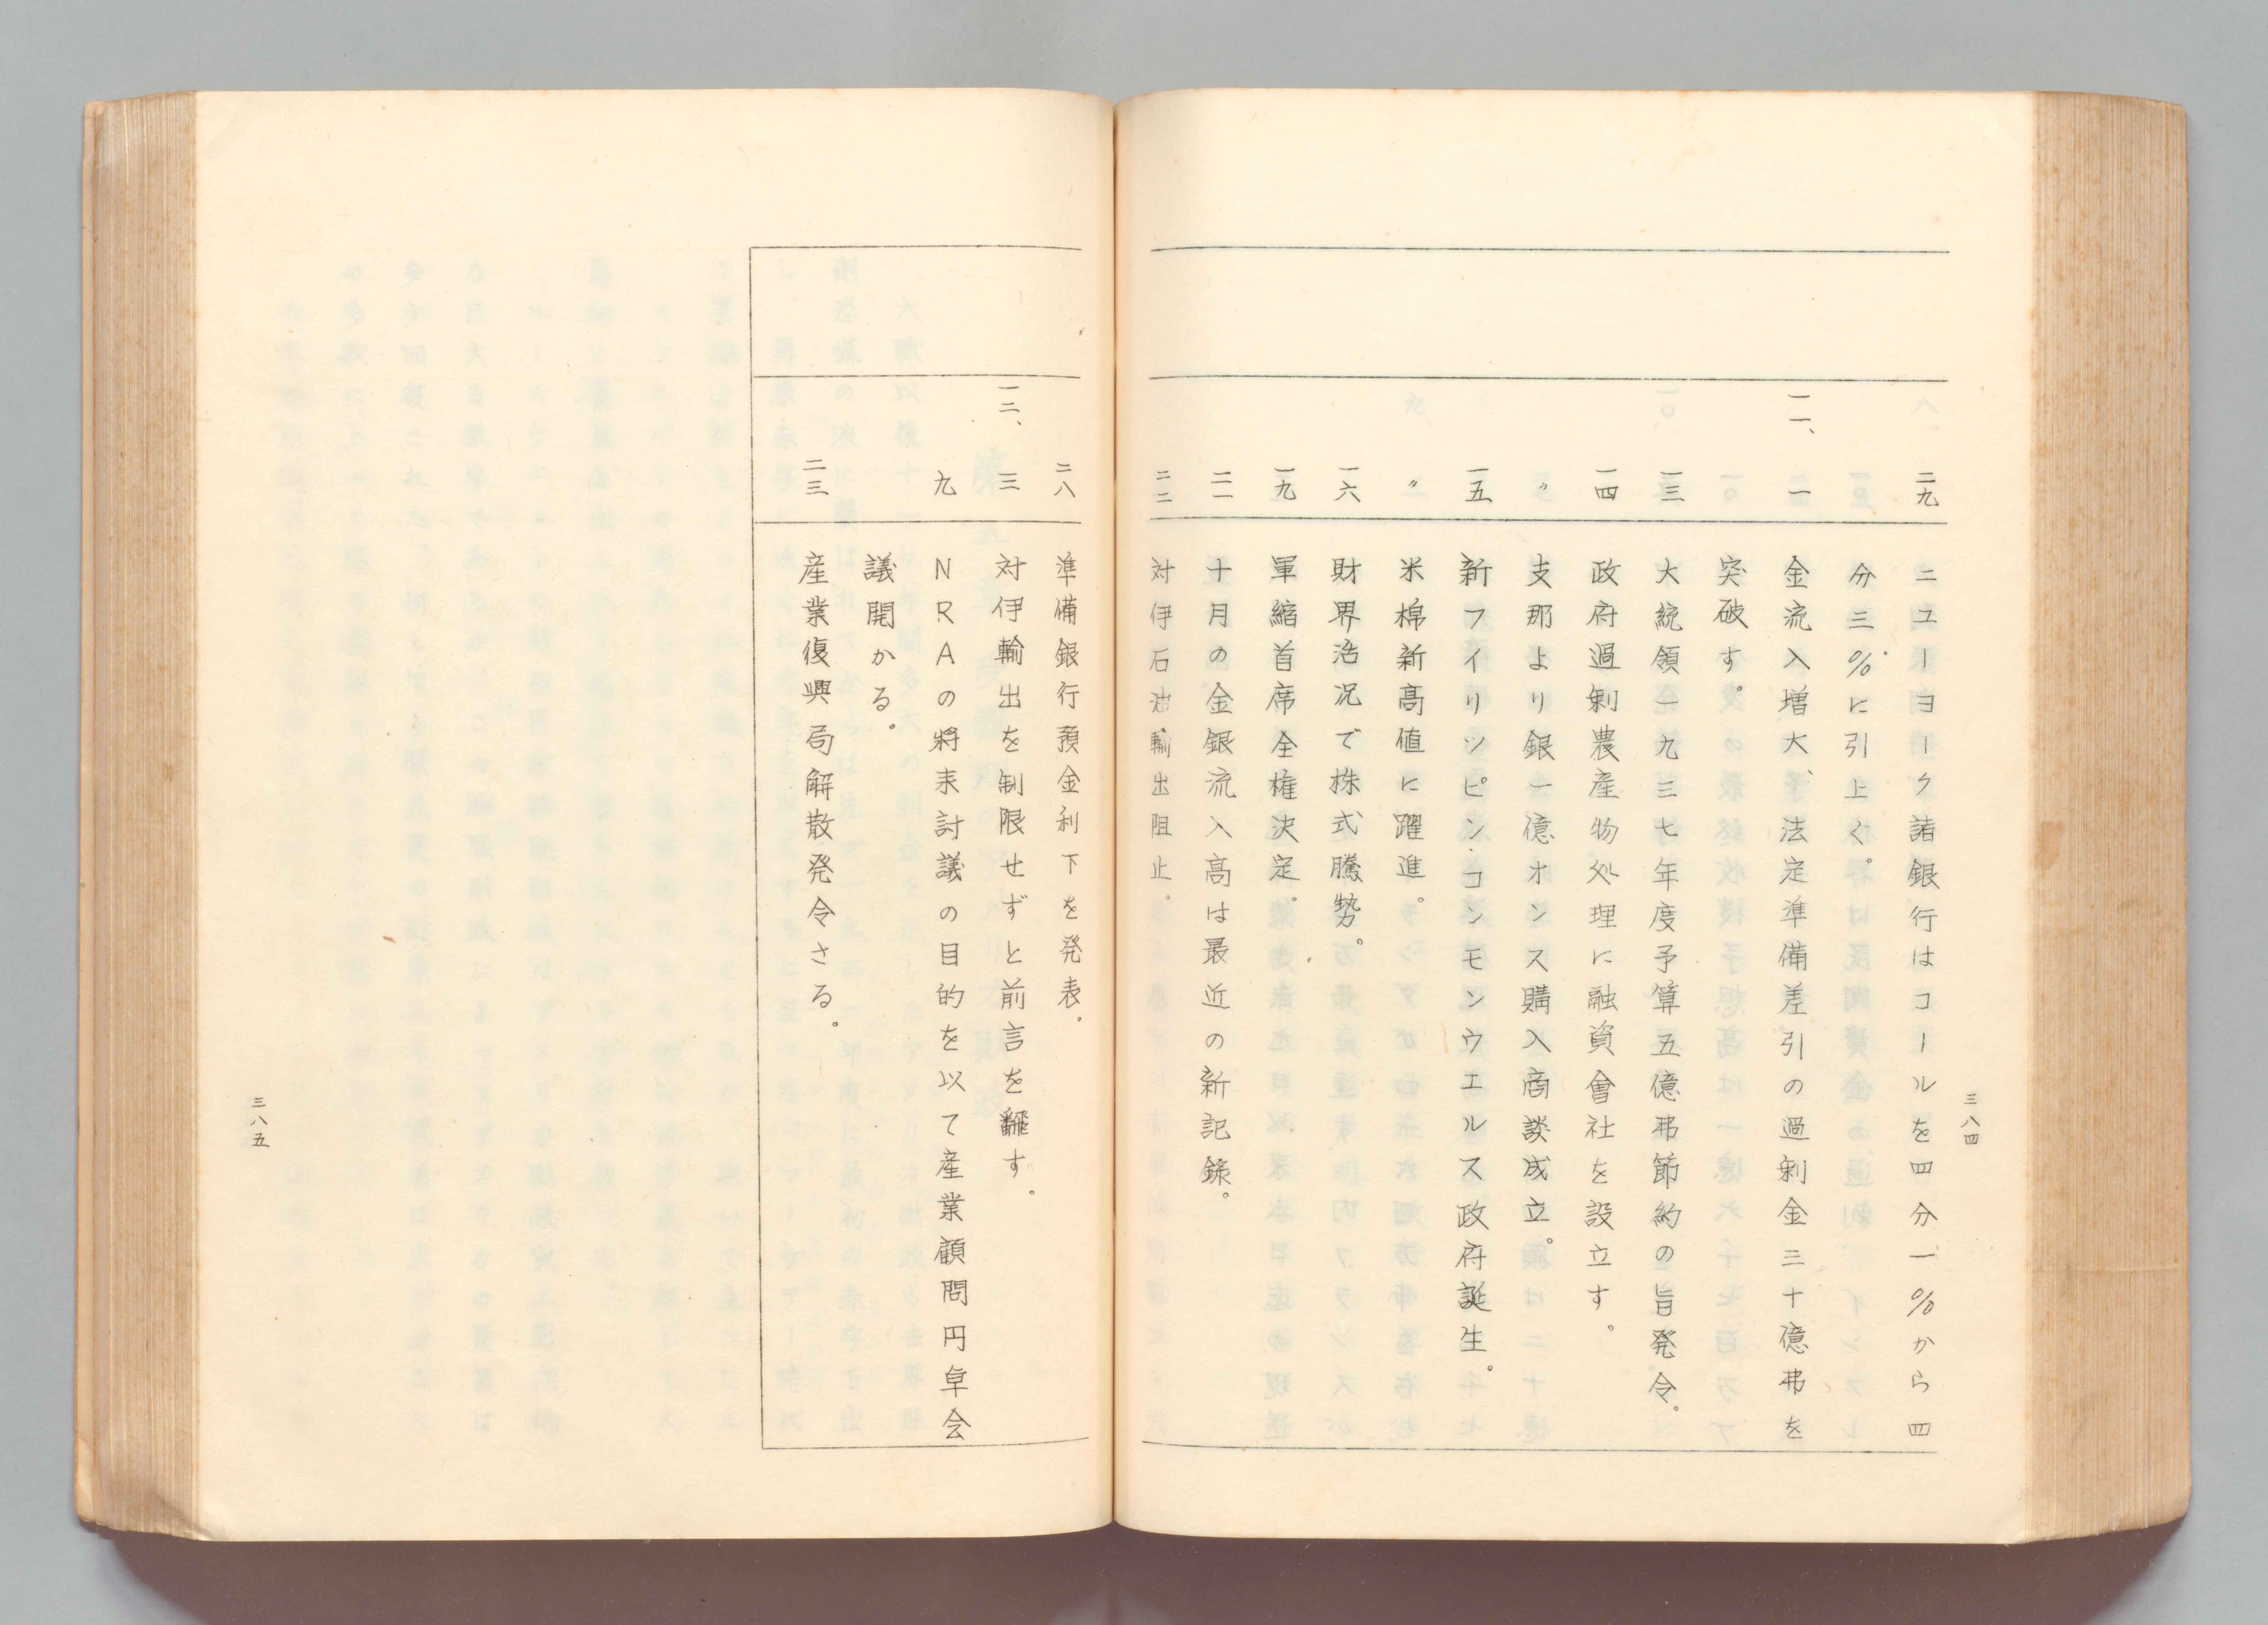 三八四
二九 ニユーヨーク諸銀行はコールを四分一%から四
分三%に引上ぐ。
一一、一 金流入増大、法定準備差引の過剰金三十億弗を
突破す。
一三 大統領一九三七年度予算五億弗節約の旨発令。
一四 政府過剰農産物処理に融資會社を設立す。
〃 支那より銀一億オンス購入商談成立。
一五 新フイリツピン・コンモンウエルス政府誕生。
〃 米棉新高値に躍進。
一六 財界浩況で株式騰勢。
一九 軍縮首席全権決定。
二一 十月の金銀流入高は最近の新記録。
二二 対伊石油輸出阻止。
二八 準備銀行預金利下を発表。
一二、三 対伊輸出を制限せずと前言を飜す。
九 NRAの将来討議の目的を以て産業顧問円卓会
議開かる。
二三 産業復興局解散発令さる。
三八五